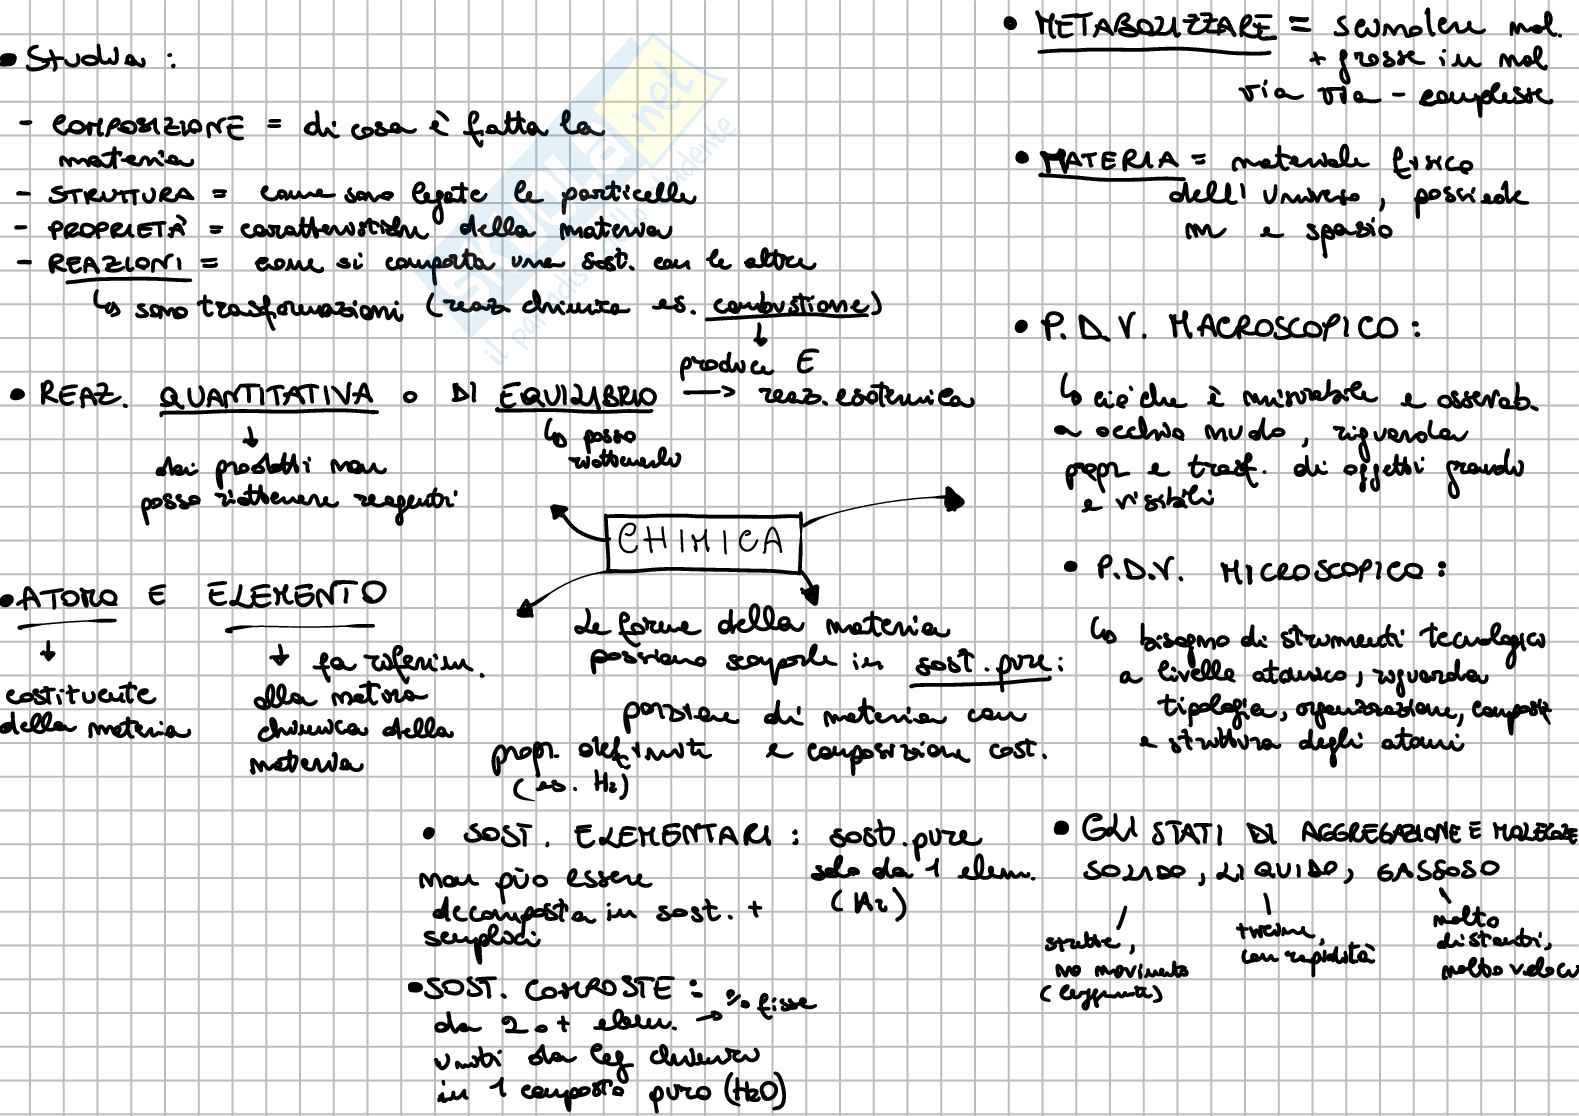 • Studia :
- COMPOSIZIONE = di cosa è fatta la
materia
- STRUTTURA = come sono legate le particelle
- PROPRIETÀ = caratteristiche della materia
- REAZIONI = come si comporta una sost. con le altre
↳ sono trasformazioni (reaz. chimica es. combustione)
↓
produce E
• REAZ. QUANTITATIVA o DI EQUILIBRIO → reaz. esotermica
↓
dai prodotti non
posso riottenere reagenti
↳ posso
riottenerli
CHIMICA
• ATOMO E ELEMENTO
↓
costituente
della materia
↓ fa riferim.
alla natura
chimica della
materia
Le forme della materia
possiamo scoporle in sost. pure :
porzione di materia con
propr. definite e composizione cost.
(es. H2)
• SOST. ELEMENTARI : sost. pure
solo da 1 elem.
(H2)
non può essere
decomposta in sost. +
semplici
• SOST. COMPOSTE :
da 2 o + elem. → % fisse
uniti da leg chimici
in 1 composto puro (H2O)
• METABOLIZZARE = scindere mol.
+ grosse in mol
via via - complesse
• MATERIA = materiale fisico
dell' Universo, possiede
m e spazio
• P.D.V. MACROSCOPICO :
↳ ciò che è misurabile e osservab.
a occhio nudo, riguarda
propr e trasf. di oggetti grandi
e visibili
• P.D.V. MICROSCOPICO :
↳ bisogno di strumenti tecnologico
a livello atomico, riguarda
tipologia, organizzazione, composiz
e struttura degli atomi
• GLI STATI DI AGGREGAZIONE E MOLECOLE
SOLIDO, LIQUIDO, GASSOSO
strette,
no movimento
vicine,
con rapidità
molto
distanti,
molto veloci
skuola.net